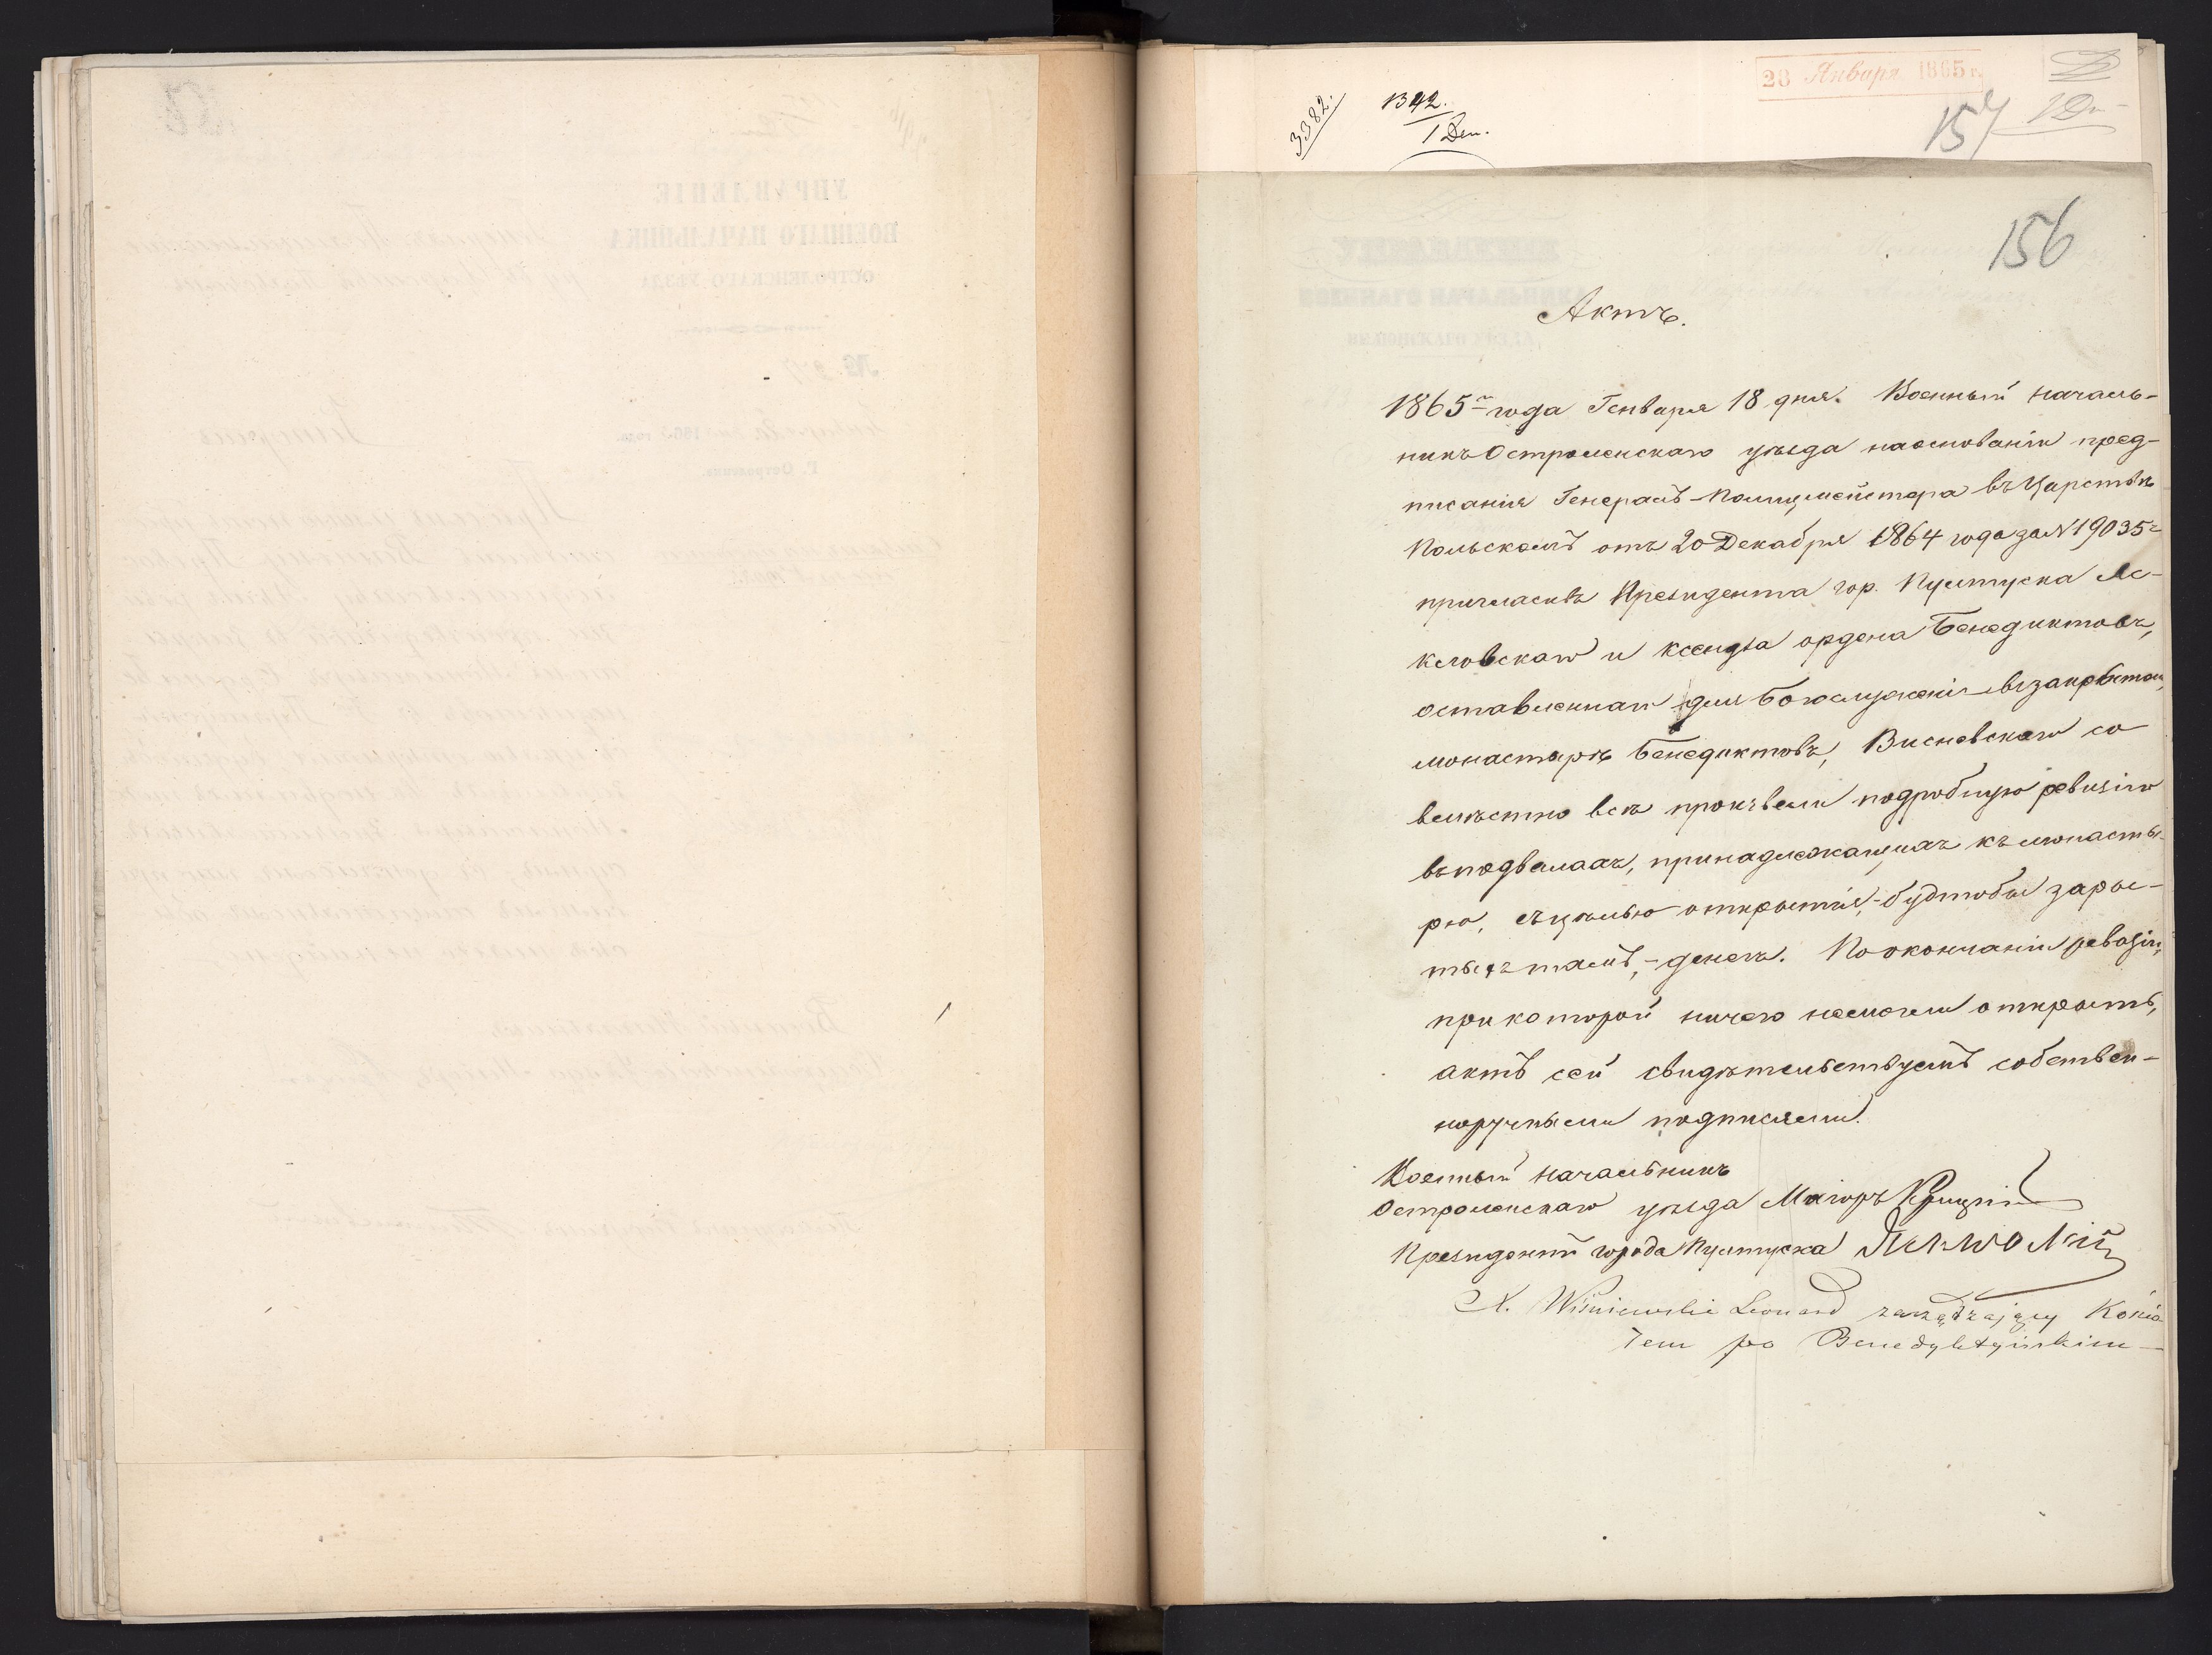 3382.
1342.
1 Деп.
20 Января 1865 г.
157
156
Актъ.
1865го года Генваря 18 дня. Военный началь-
никъ Остроленскаго уѣзда наосновании пред-
писания Генералъ-Полицмейстера въ Царствѣ
Польскомъ отъ 20 Декабря 1864 года за № 19035м
пригласивъ Президента гор. Пултуска
и ксендза ордена Бенедиктовъ,
оставленнаго для Богослужения въ закрытом
монастырѣ Бенедиктовъ, Висневскаго со
вмѣстно всѣ произвели подробную ревизiю
въ подвалахъ, принадлежащихъ къ монасты-
рю, съ цѣлью открытiя, - будтобы зары-
тыхъ тамъ, - денегъ. По окончанiи ревизiи,
при которой ничего немогли открыть,
актъ сей свидѣтельствуемъ собствен-
норучными подписями.
Военный начальникъ
Остроленскаго уѣзда Маiоръ
Президентъ города Пултуска
X. Wiśniewski Leonard zarządzający Kościo
łem po Benedyktyńskim